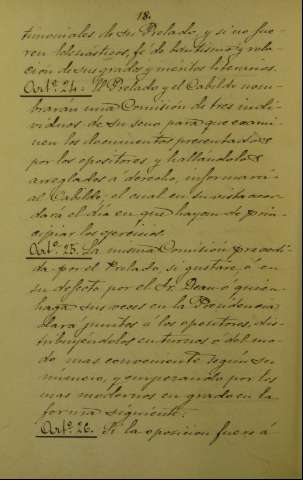 18.
timoniales de su Prelado, y si no fue-
ren Eclesiásticos, fé de bautismo y rela-
cion de sus grados y meritos literarios.
Artº. 24. El Prelado y el Cabildo nom-
brarán una Comision de tres indi-
viduos de su seno para que exami-
nen los documentos presentados
por los opositores y hallándolos
arreglados á derecho, informará
al Cabildo, el cual en su vista acor-
dará el dia en que hayan de prin-
cipiar los ejercicios.
Artº. 25. La misma Comision presidi-
da por el Prelado, si gustare, ó en
su defecto por el Sr. Dean ó quien
haga sus veces en la Presidencia,
dará puntos á los opositores, dis-
tribuyéndolos en turnos ó del mo-
do mas conveniente segun su
número, y empezando por los
mas modernos en grado en la
forma siguiente:
Artº. 26. Si la oposicion fuere á